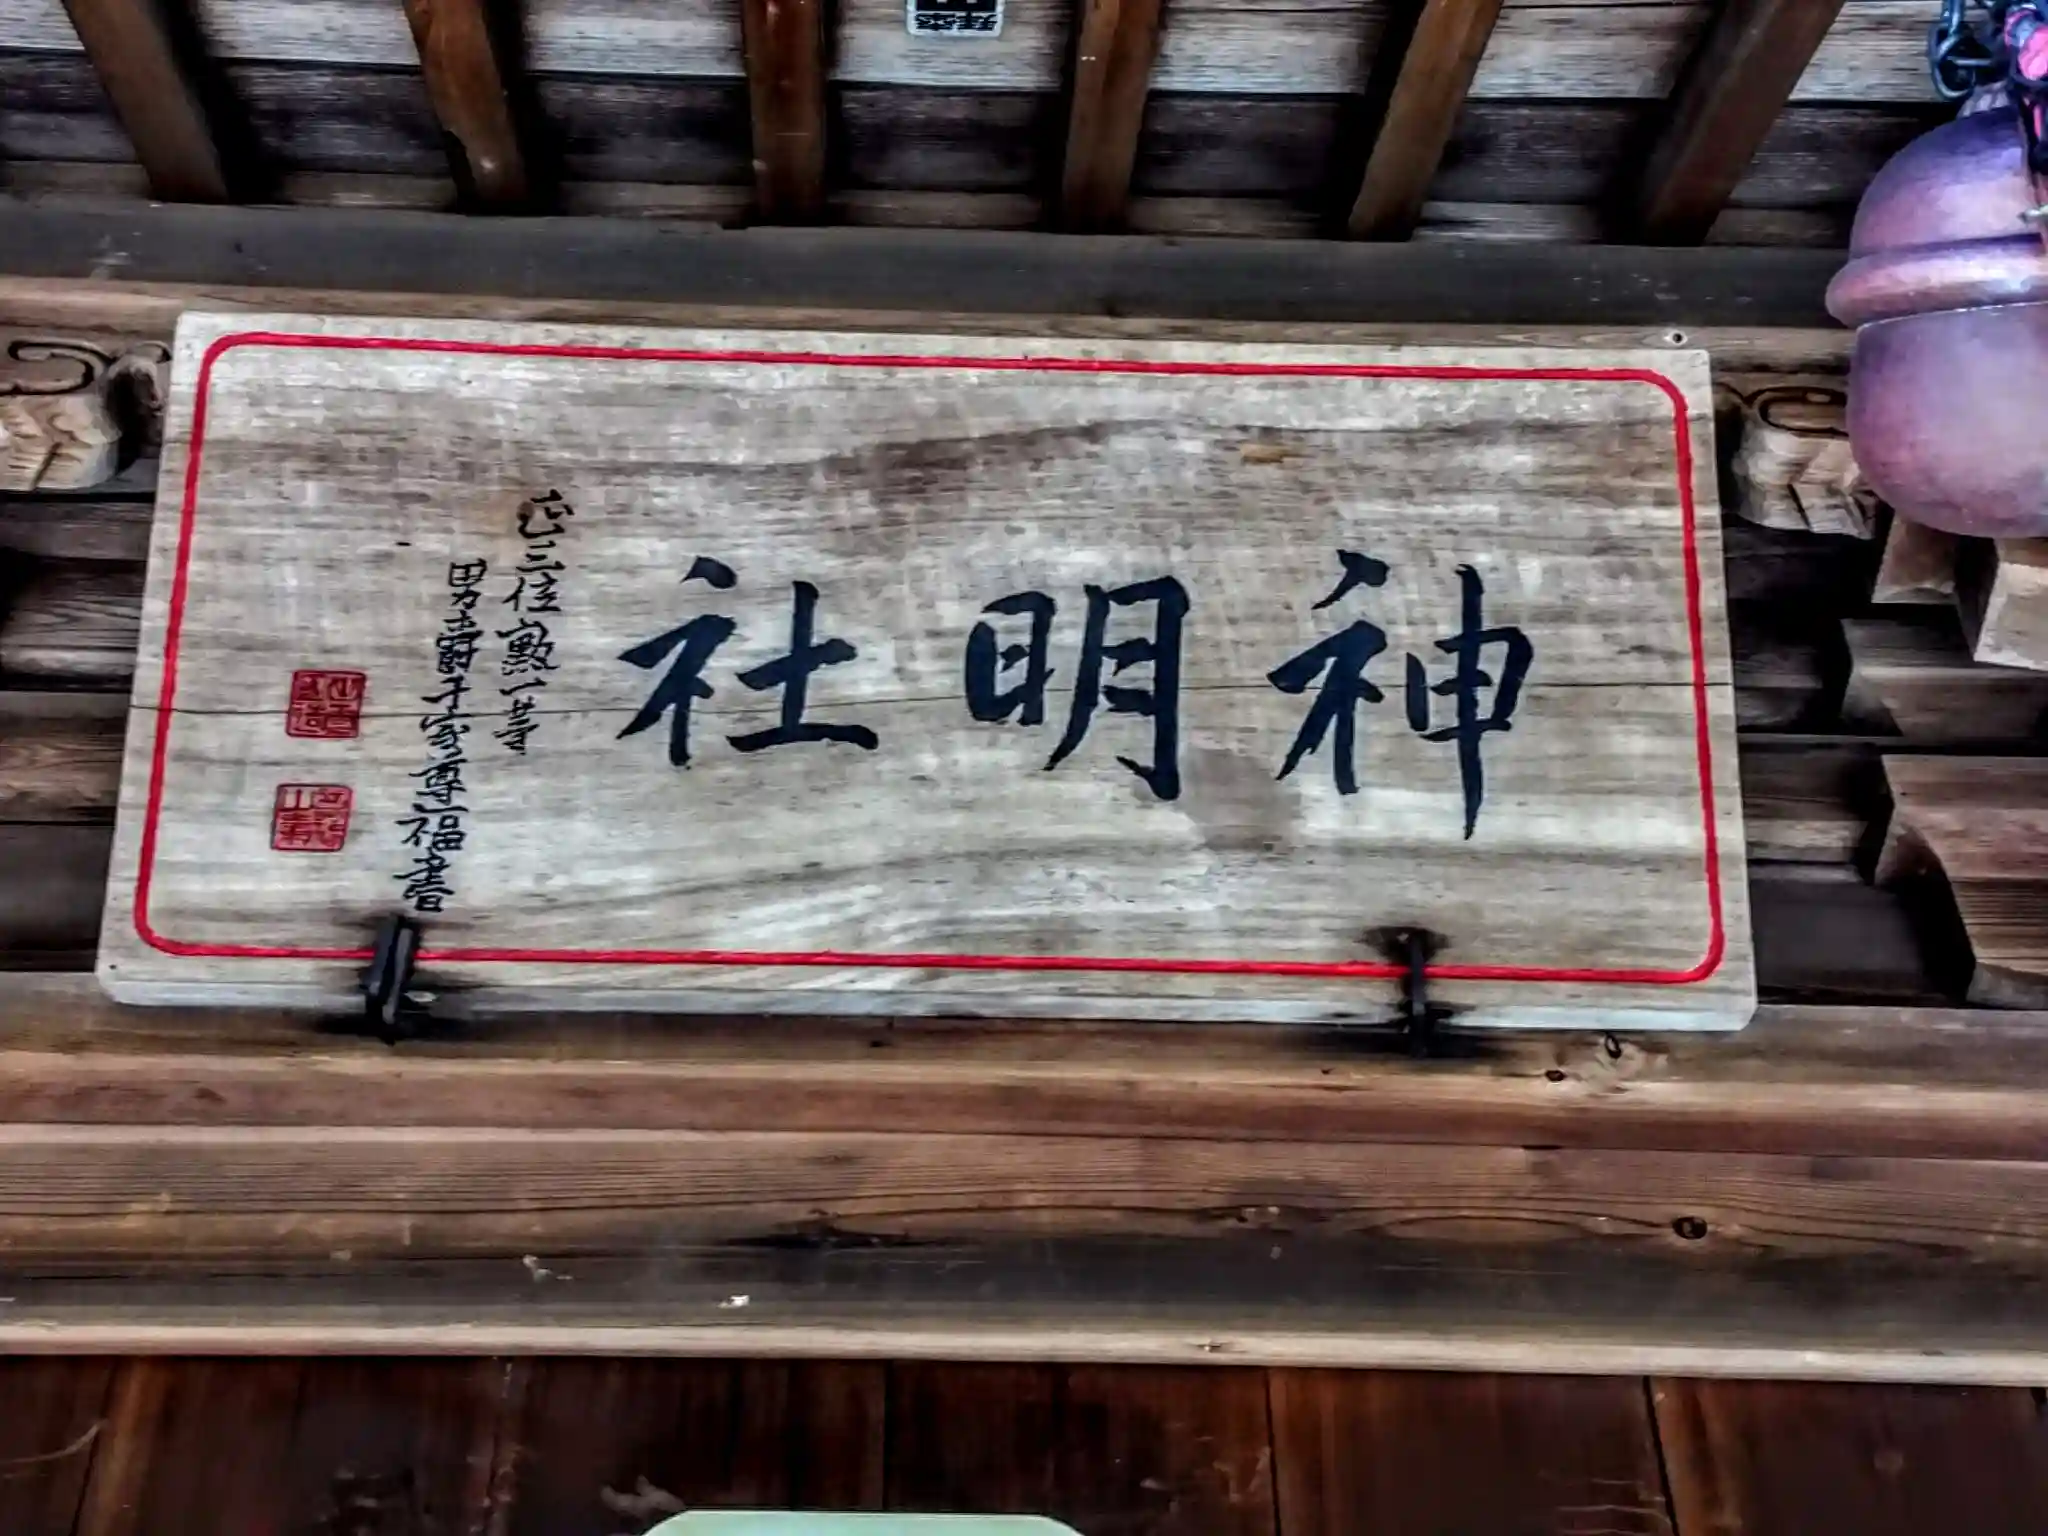 神明社
正三位勲一等
男爵千家尊福書